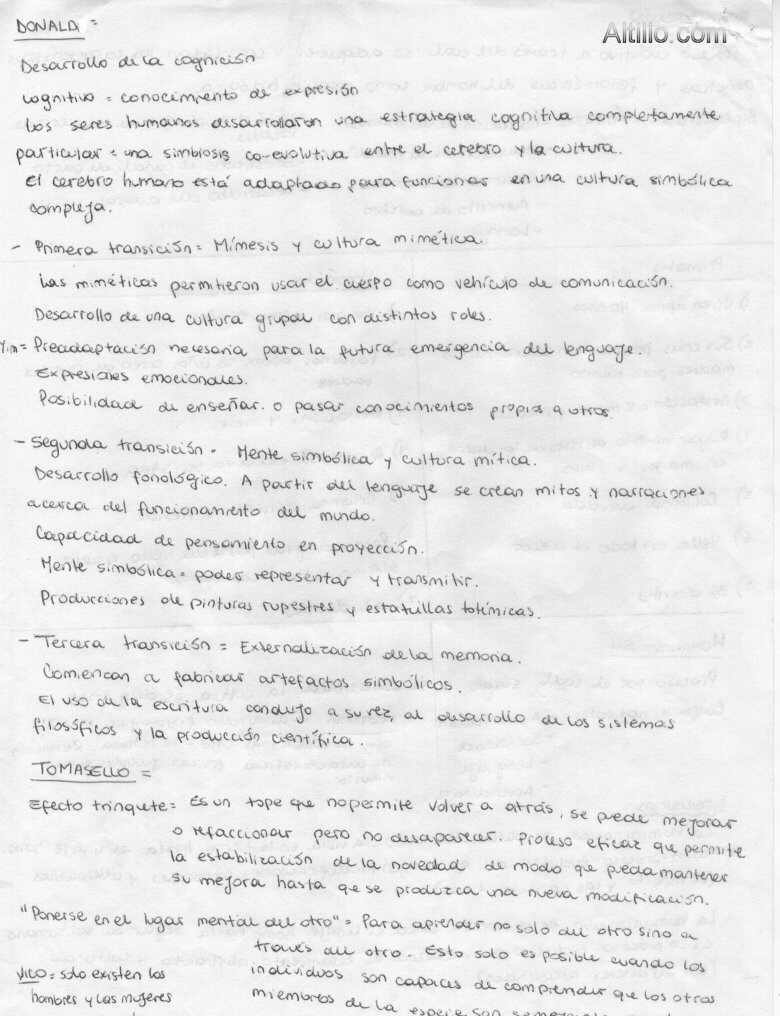 Altillo.com
DONALD =
Desarrollo de la cognición
cognitivo = conocimiento de expresión
Los seres humanos desarrollaron una estrategia cognitiva completamente
particular = una simbiosis co-evolutiva entre el cerebro y la cultura.
El cerebro humano está adaptado para funcionar en una cultura simbólica
compleja.
- Primera transición = Mímesis y cultura mimética.
Las miméticas permitieron usar el cuerpo como vehículo de comunicación.
Desarrollo de una cultura grupal con distintos roles.
= Preadaptación necesaria para la futura emergencia del lenguaje.
Expresiones emocionales.
Posibilidad de enseñar o pasar conocimientos propios a otros.
- Segunda transición = Mente simbólica y cultura mítica.
Desarrollo fonológico. A partir del lenguaje se crean mitos y narraciones
acerca del funcionamiento del mundo.
Capacidad de pensamiento en proyección.
Mente simbólica = poder representar y transmitir.
Producciones de pinturas rupestres y estatuillas totímicas.
- Tercera transición = Externalización de la memoria.
Comienzan a fabricar artefactos simbólicos.
El uso de la escritura condujo a su vez, al desarrollo de los sistemas
filosóficos y la producción científica.
TOMASELLO =
Efecto trinquete = Es un tope que no permite volver a atrás, se puede mejorar
o refaccionar pero no desaparecer. Proceso eficaz que permite
la estabilización de la novedad de modo que pueda mantener
su mejora hasta que se produzca una nueva modificación.
"Ponerse en el lugar mental del otro" = Para aprender no solo del otro sino a
través del otro. Esto solo es posible cuando los
individuos son capaces de comprender que los otros
miembros de la especie son
VICO = solo existen los
hombres y las mujeres